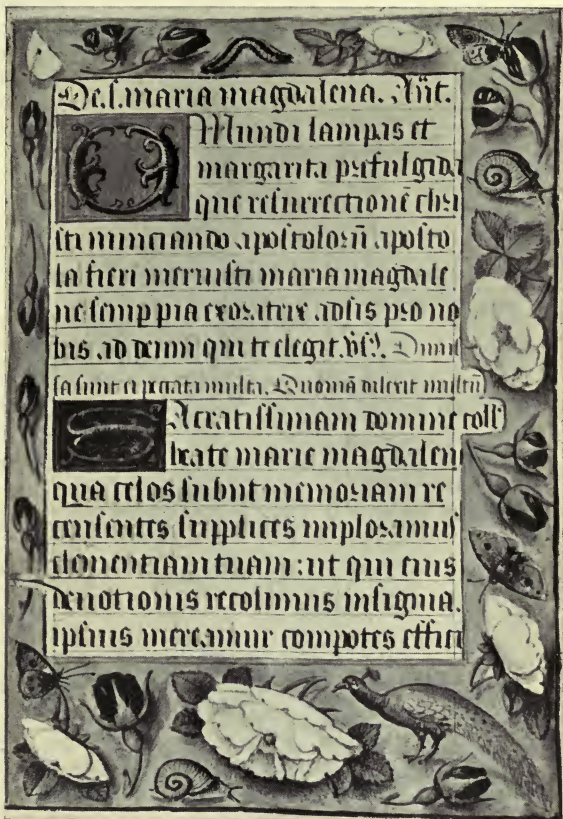 De. s. maria magdalena. Añt.
O Mundi lampas et
margarita prefulgida
que resurrectionē chri
sti nunciando apostoloꝝ aposto
la fieri meruisti maria magdale
ne semp pia exoratrix adsis pro no
bis ad deum qui te elegit. v̄s. Dimis
sa sunt ei peccata multa. Quoniā dilexit multū
Sacratissimam domine coll
beate marie magdalene
qua celos subiit memoriam re
censentes supplices imploramus
clementiam tuam: ut qui eius
deuotionis recolimus insignia.
ipsius mereamur compotes effici